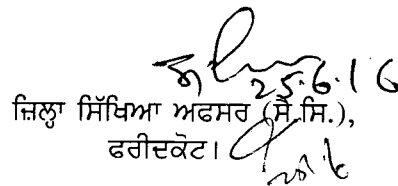 25.6.16
ਜ਼ਿਲ੍ਹਾ ਸਿੱਖਿਆ ਅਫਸਰ (ਸੈ.ਸਿ.),
ਫਰੀਦਕੋਟ।